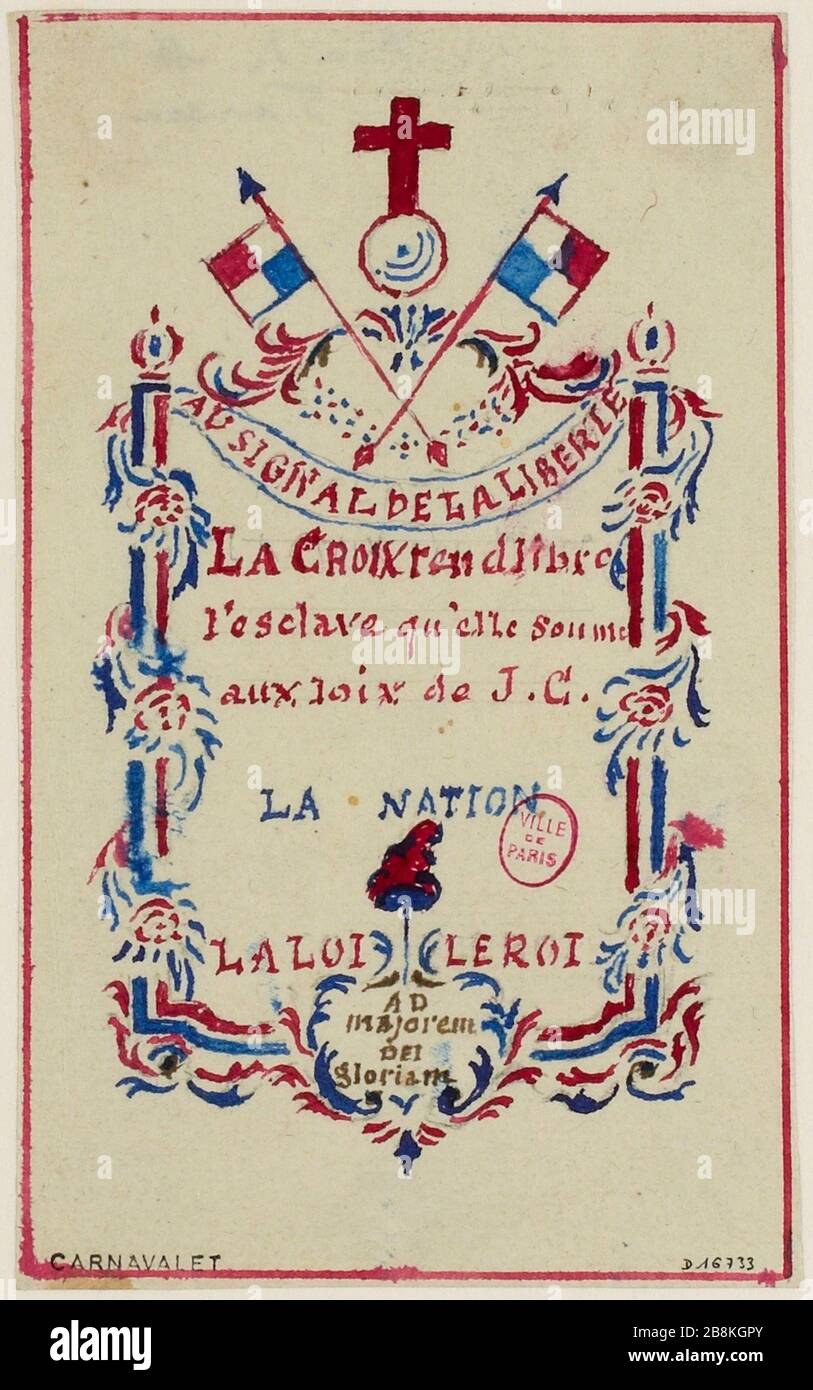 AU SIGNAL DE LA LIBERTE
LA CROIX rend libre
l'esclave qu'elle soumet
aux loix de J. C.
LA NATION
VILLE
DE
PARIS
LA LOI LE ROI
AD
majorem
DEI
gloriam
CARNAVALET
D 16733
alamy
alamy
alamy
alamy
Image ID: 2B8KGPY
www.alamy.com